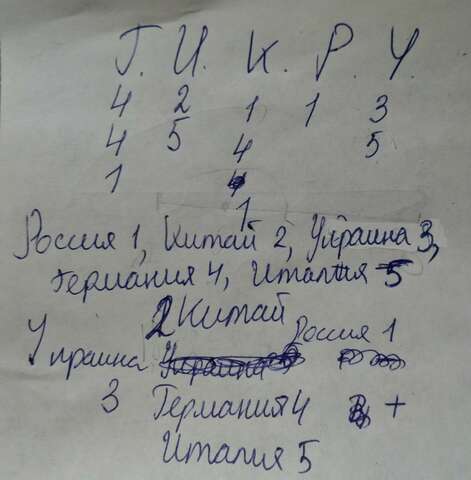 Г. И. К. Р. У.
4 2 1 1 3
4 5 4 5
1
1
Россия 1, Китай 2, Украина 3,
Германия 4, Италия 5
2 Китай
Россия 1
Украина
3 Германия 4 +
Италия 5